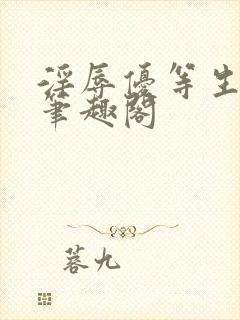 淫辱優等生
筆趣閣
蓉九